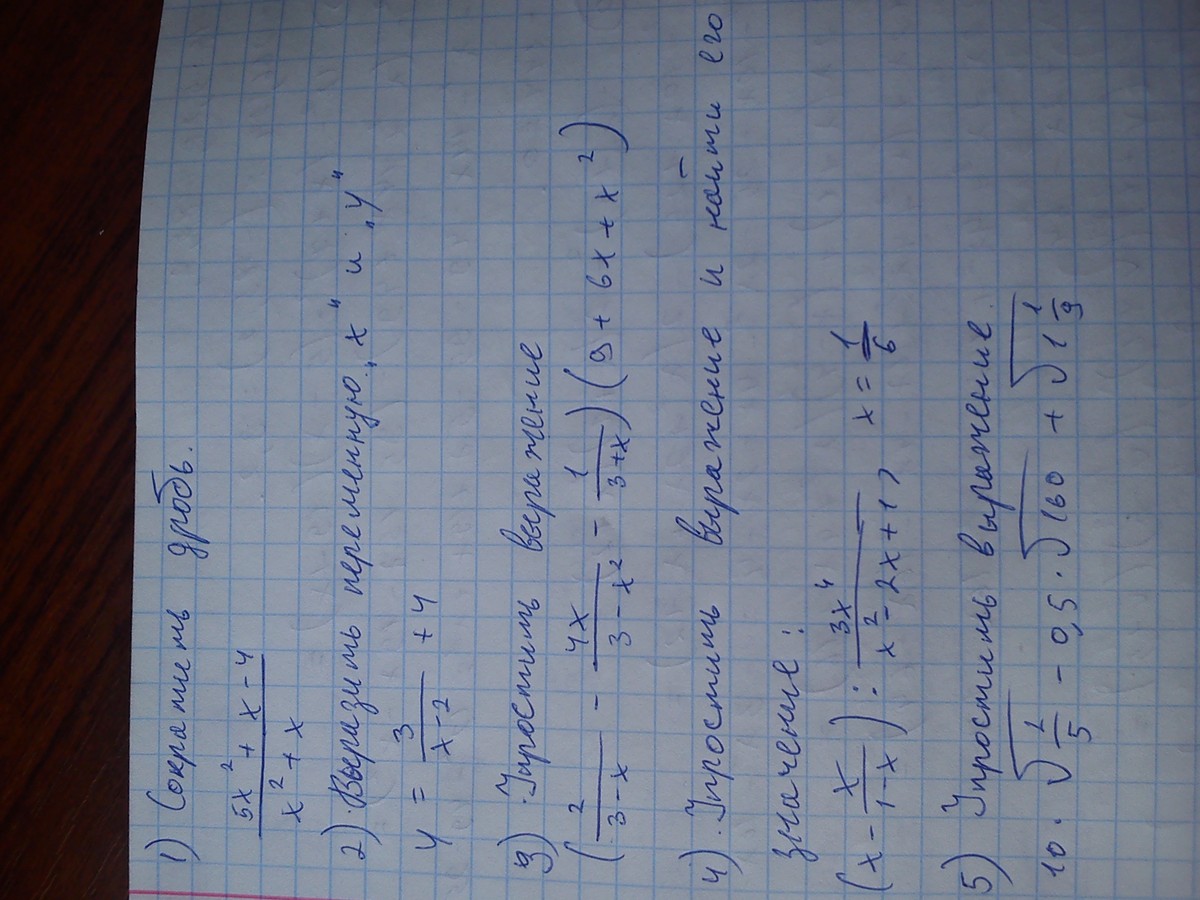 1) Сократить дробь.
5x² + x - 4 / x² + x
2) Выразить переменную „x" и „y"
y = 3/(x-2) + 4
3) Упростить выражение
(2/(3-x) - 4x/(3-x²) - 1/(3+x)) (9 + 6x + x²)
4) Упростить выражение и найти его
значение:
(x - x/(1-x)) : 3x⁴/(x² - 2x + 1), x = 1/6
5) Упростить выражение
10 · √(1/5) - 0,5 · √160 + √(1 1/9)